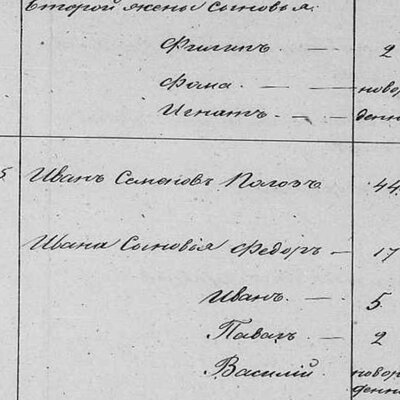 второй жены сыновья:
Филипъ. — 2
Фома. — новор
Игнатъ. — денн
5 Иванъ Семеновъ Полозъ 44
Ивана Сыновья Федоръ — 17
Иванъ. — 5.
Павалъ. — 2
Василій. новор
денн